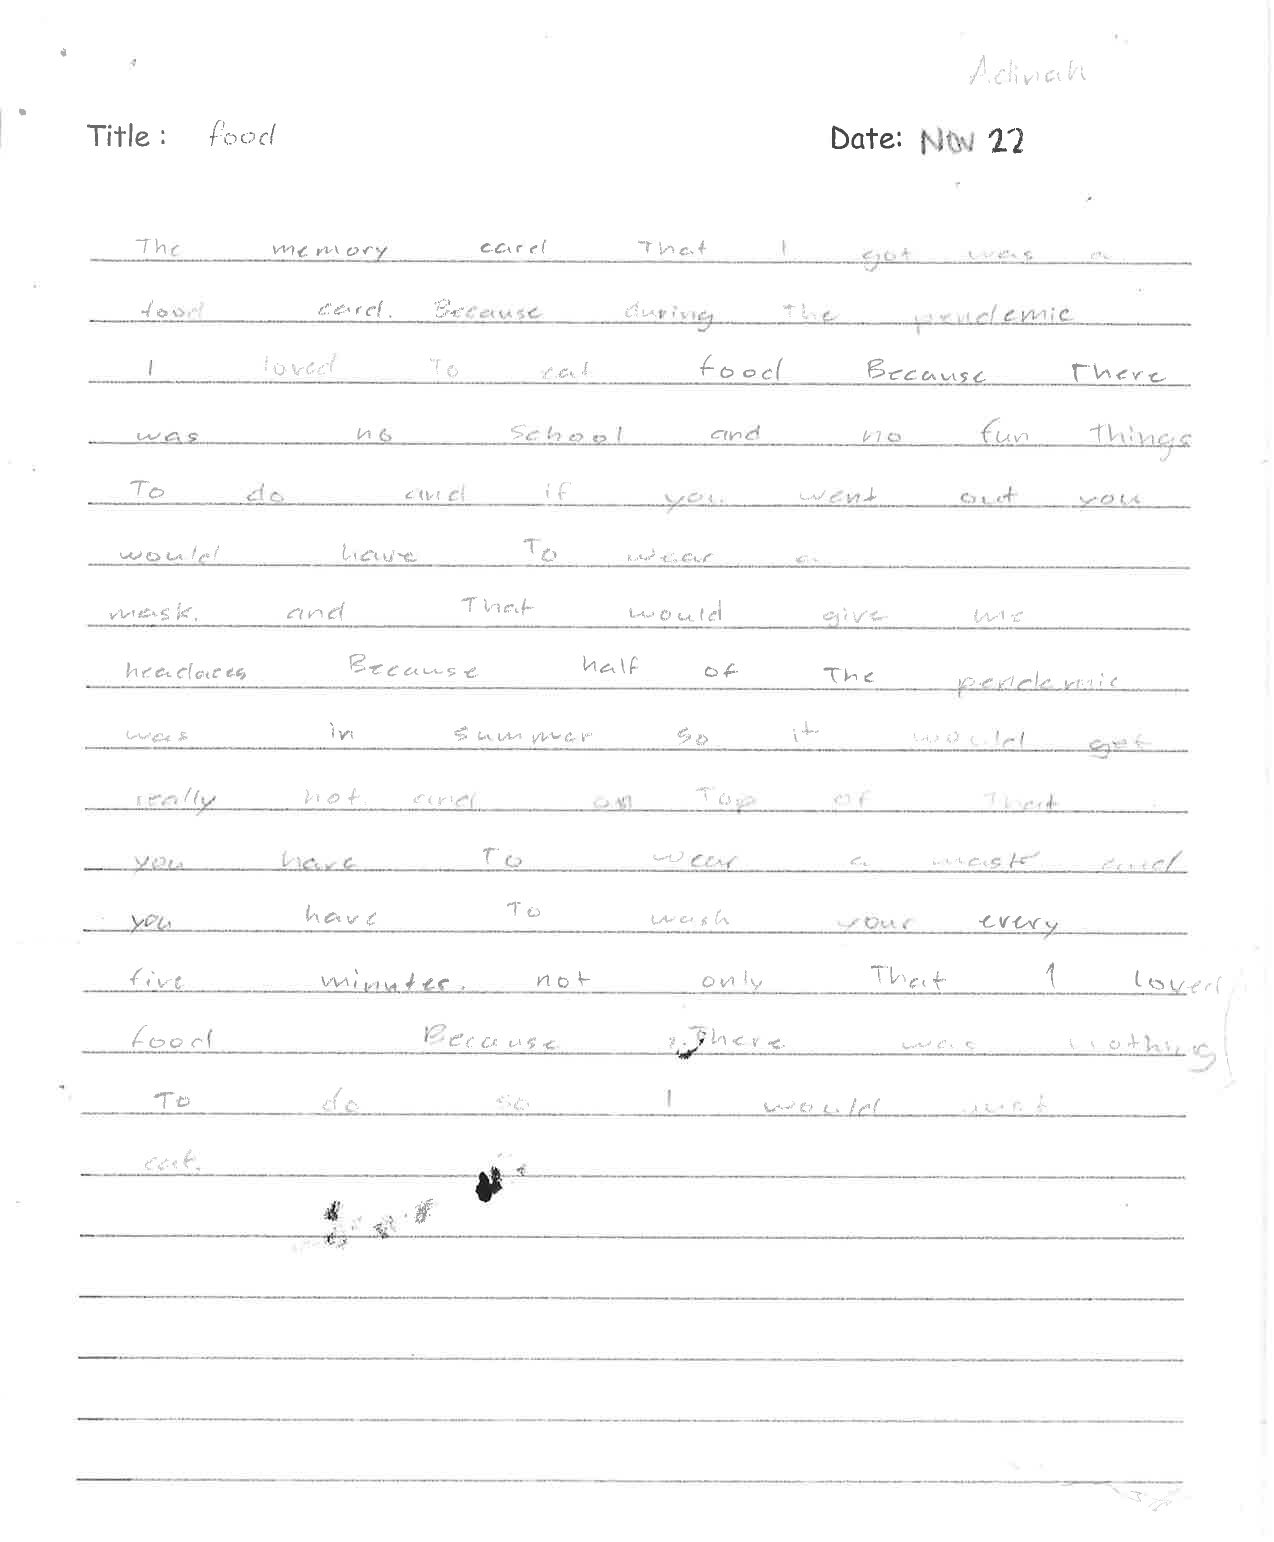 Adinah
Title : food Date: Nov 22
The memory card That I got was a
food card. Because during The pendemic
I loved To eat food Because There
was no school and no fun Things
To do and if you went out you
would have To wear a
mask. and That would give me
headaces Because half of The pendemic
was in summer so it would get
really hot. and on Top of That
you have To wear a mask and
you have To wash your every
five minutes. not only That I loved
food Because There was nothing
To do so I would just
eat.